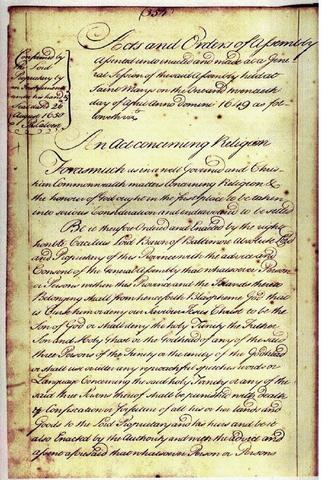 (354)
Acts and Orders of Assembly
assented unto enacted and made at a Gene
ral Session of the said Assembly held at
Saint Marys on the One and twentieth
day of Aprill Anno Domini 1649 as fol
loweth viz
Confirmed by
the Lord
Proprietary by
an Instrument
under his hand &
Seale dated 26
August 1650
An Act concerning Religion
Forasmuch as in a well Governed and Chris
tian Commonwealth matters Concerning Religion &
the honour of God ought in the first place to be taken
into serious Consideration and endeavoured to be settled
Be it therefore Ordered and Enacted by the right
honble Cecilius Lord Baron of Baltemore absolute Lord
and Proprietary of this Province with the advice and
Consent of this Generall Assembly that whatsoever Person
or Persons within this Province and the Islands thereto
Belonging shall from henceforth Blaspheme God that
is Curse him or deny our Saviour Jesus Christ to be the
Son of God or shall deny the holy Trinity the Father
Son and Holy Ghost or the Godhead of any of the said
three Persons of the Trinity or the unity of the Godhead
or shall use or utter any reproachful speeches words or
Language Concerning the said holy Trinity or any of the
said three Persons thereof shall be punished with death
& Confiscation or forfeiture of all his or her lands and
Goods to the Lord Proprietary and his heirs and be it
also Enacted by the Authority and with the advice and
assent aforesaid that whatsoever Person or Persons